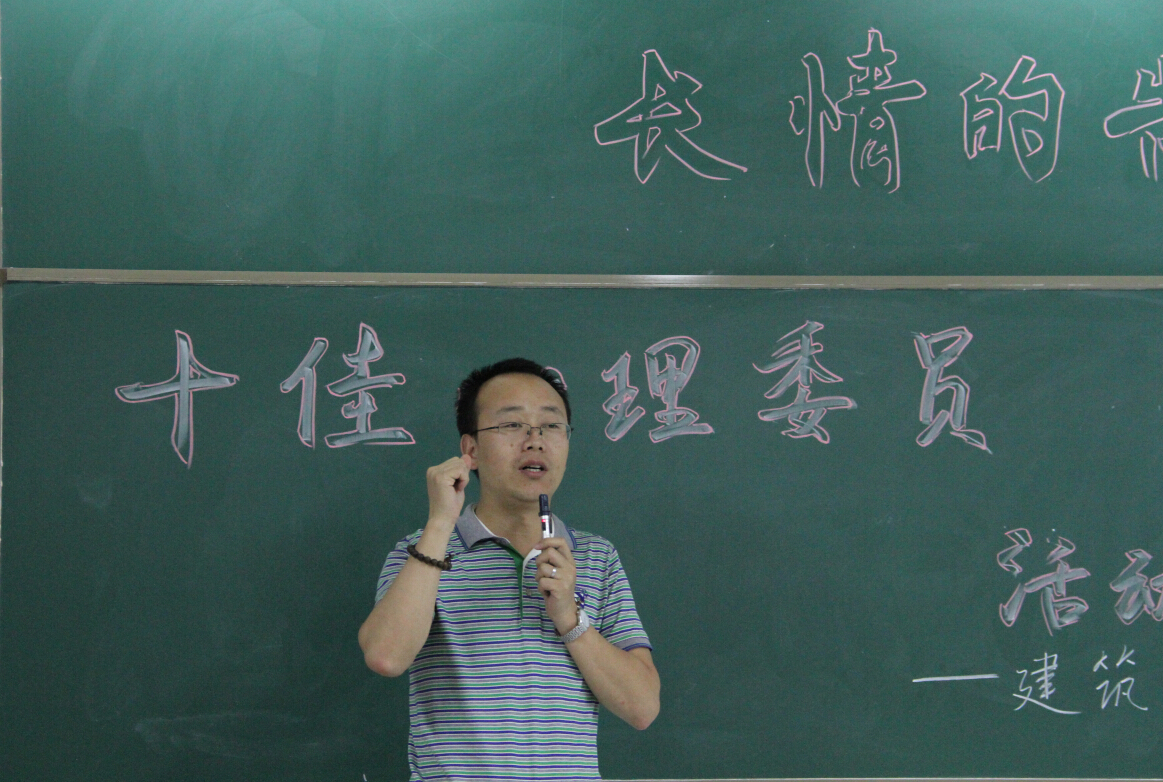 长情的
十佳 理委员
活动
—建筑